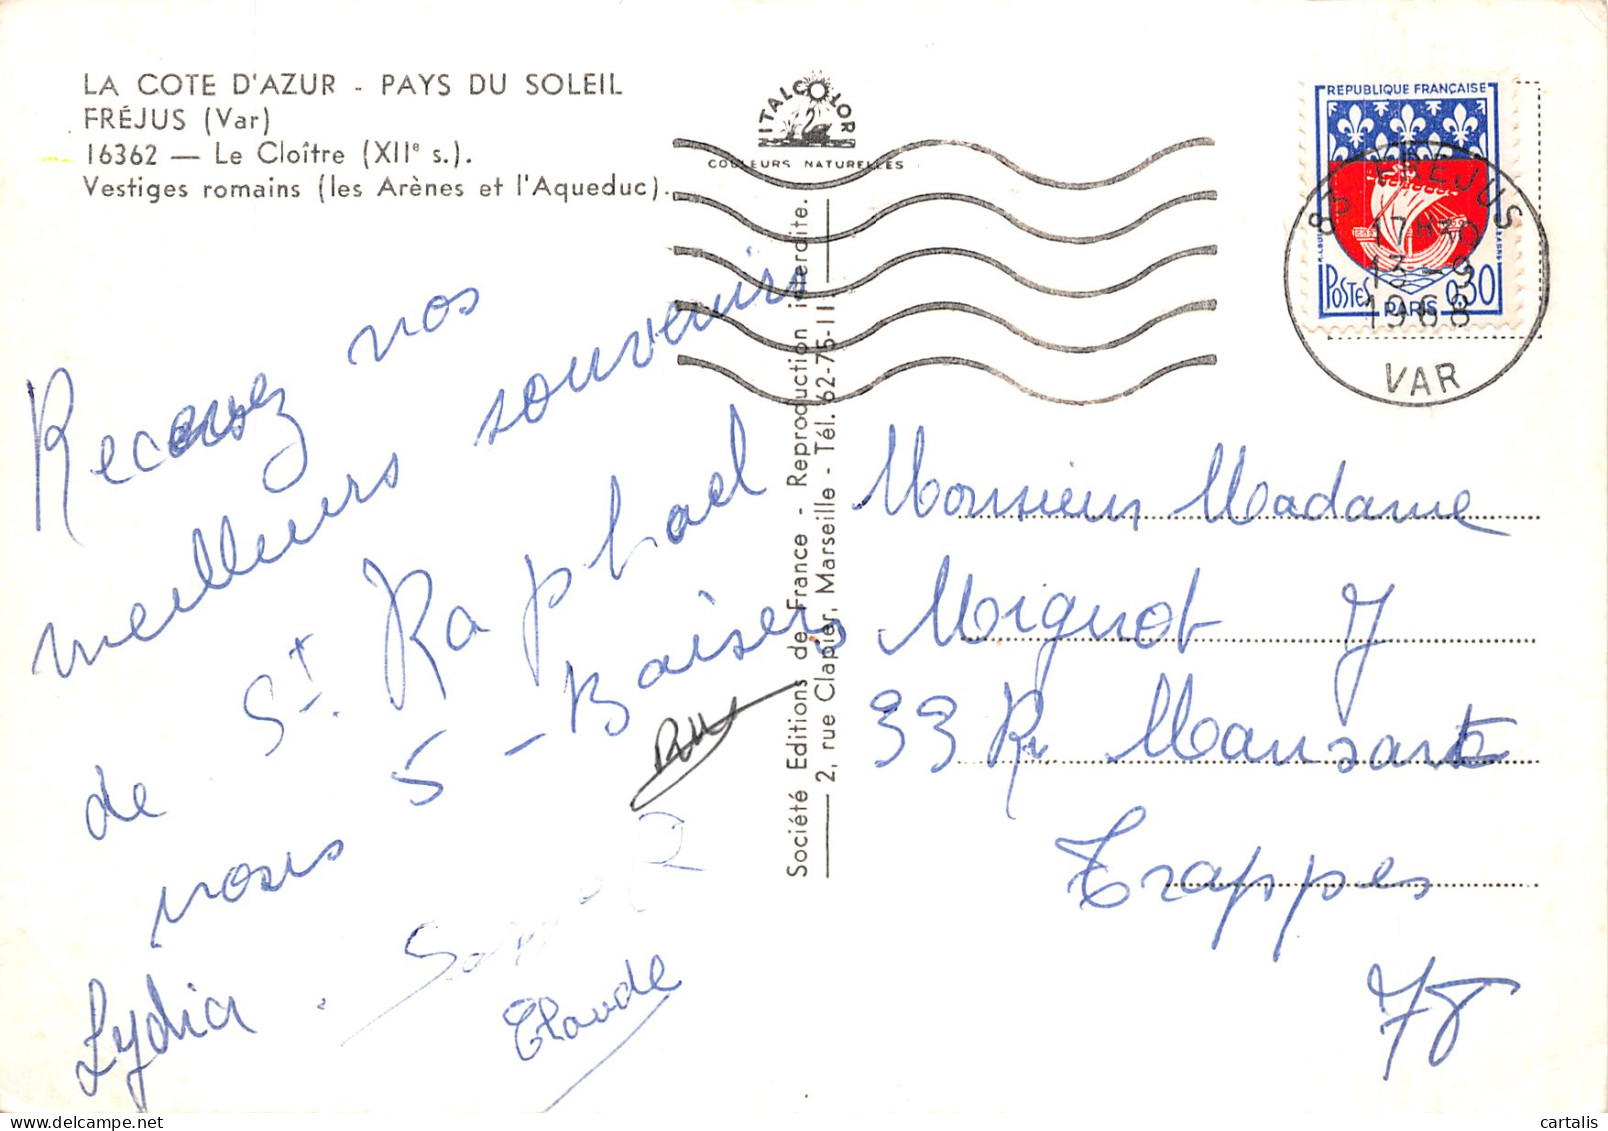 LA COTE D'AZUR - PAYS DU SOLEIL
FRÉJUS (Var)
16362 — Le Cloître (XIIe s.).
Vestiges romains (les Arènes et l'Aqueduc).
Recevez nos
meilleurs souvenirs
de St. Raphael
nous 5 - Baisers
Lydia.
Claude
NITALCOLOR
2
COULEURS NATURELLES
Société Editions de France - Reproduction interdite.
2, rue Clapier, Marseille - Tél. 62-75-11
REPUBLIQUE FRANÇAISE
POSTES 0,30
PARIS
83 FREJUS
17H30
13-9
1968
VAR
Monsieur Madame
Mignot J
33 R. Mansart
Trappes
78
cartalis